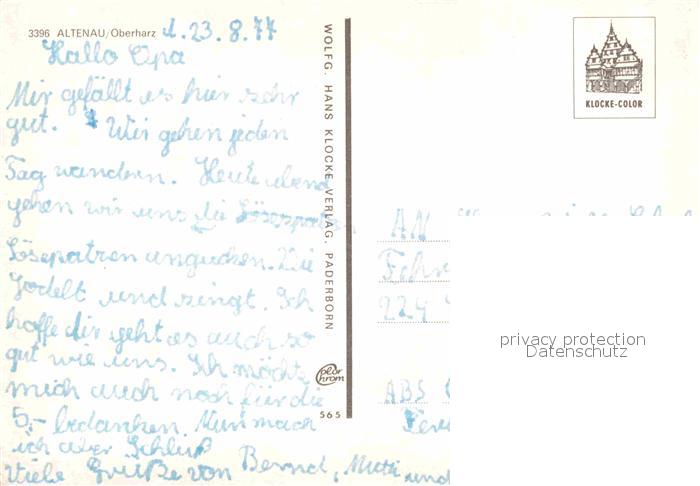 3396 ALTENAU/Oberharz d. 23.8.77
Hallo Opa
Mir gefällt es hier sehr
gut. Wir gehen jeden
Tag wandern. Heute abend
gehen wir uns die
Lösepatren angucken. Die
Jodelt und singt. Ich
hoffe dir geht es auch so
gut wie uns. Ich möchte
mich auch noch für die
5,- bedanken. Nun mach
ich aber Schluß
Viele Grüße von Bernd, Mutti und
WOLFG. HANS KLOCKE VERLAG, PADERBORN
565
KLOCKE-COLOR
AN
224
ABS
privacy protection
Datenschutz